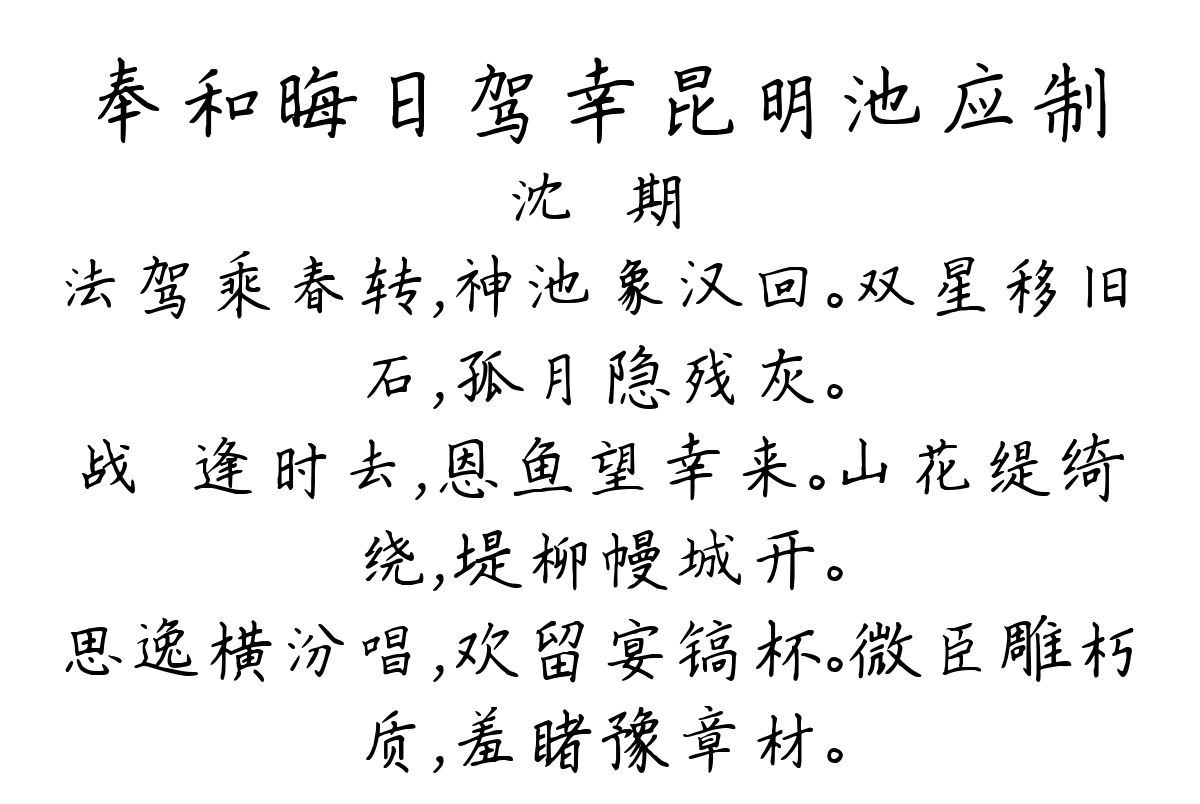 奉和晦日驾幸昆明池应制
沈 期
法驾乘春转,神池象汉回。双星移旧
石,孤月隐残灰。
战 逢时去,恩鱼望幸来。山花缇绮
绕,堤柳幔城开。
思逸横汾唱,欢留宴镐杯。微臣雕朽
质,羞睹豫章材。